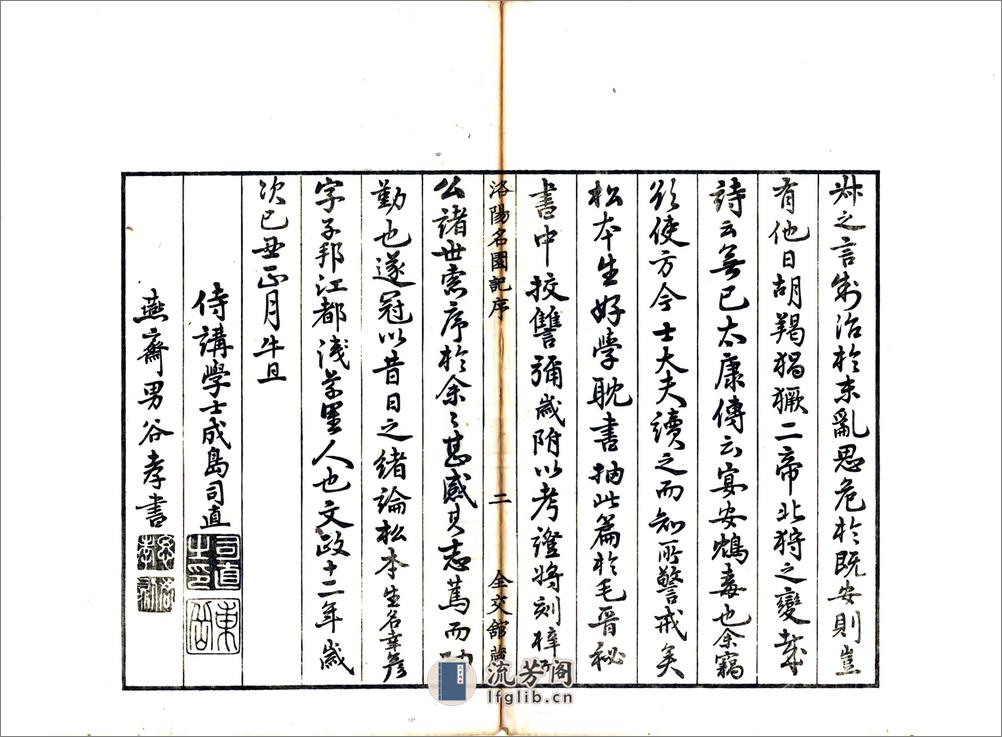 叔之言制治於未亂思危於既安則豈
有他日胡羯猖獗二帝北狩之變哉
詩云無已太康傳云宴安鴆毒也余竊
欲使方今士大夫讀之而知所警戒矣
松本生好學耽書抽此篇於毛晉秘
書中挍讐彌歲附以考證將刻梓
洛陽名園記序
二
全交館藏
公諸世索序於余〻甚感其志篤而
勤也遂冠以昔日之緒論松本生名幸彥
字子邦江都淺草里人也文政十二年歲
次己丑正月牛旦
侍講學士成島司直
司直之印
東岳
燕齋男谷孝書
流芳阁
lfglib.cn